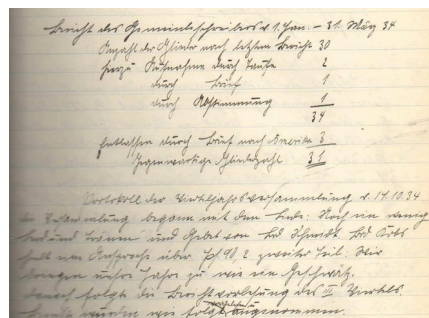 Bericht des Gemeindeschreibers v. 1. Jan. – 31. März 34
Anzahl der Glieder nach letztem Bericht 30
hierzu Aufnahme durch Taufe 2
durch Brief 1
durch Abstimmung 1
34
Entlassen durch Brief nach Amerika 3
Gegenwärtige Gliederzahl 31
Protokoll der Vierteljahrsversammlung v. 14.10.34
Die Versammlung begann mit dem Liede: Noch ein wenig
und Tränen und Gebet von Bd Schmidt. Bd
hält eine Ansprache über Ps 90, 2 zweiter Teil: Wir
bringen unsre Jahre zu wie ein Geschwätz.
Danach folgte die Berichtvorlesung des III. Viertels.
wurden wie folgt angenommen.